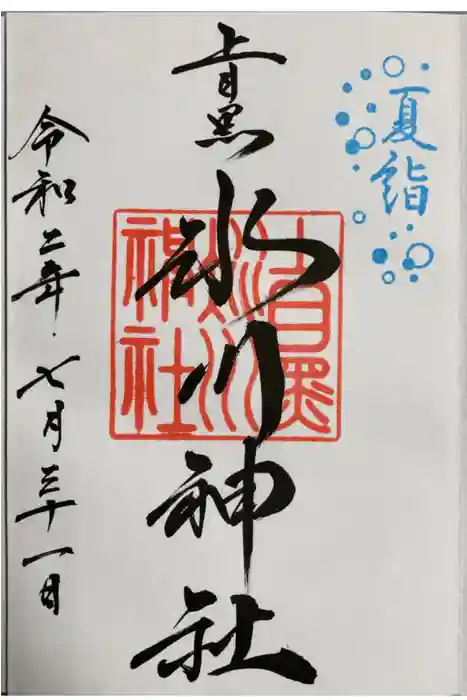 夏詣
上目黒
氷川神社
上目黒
氷川
神社
令和二年七月三十一日